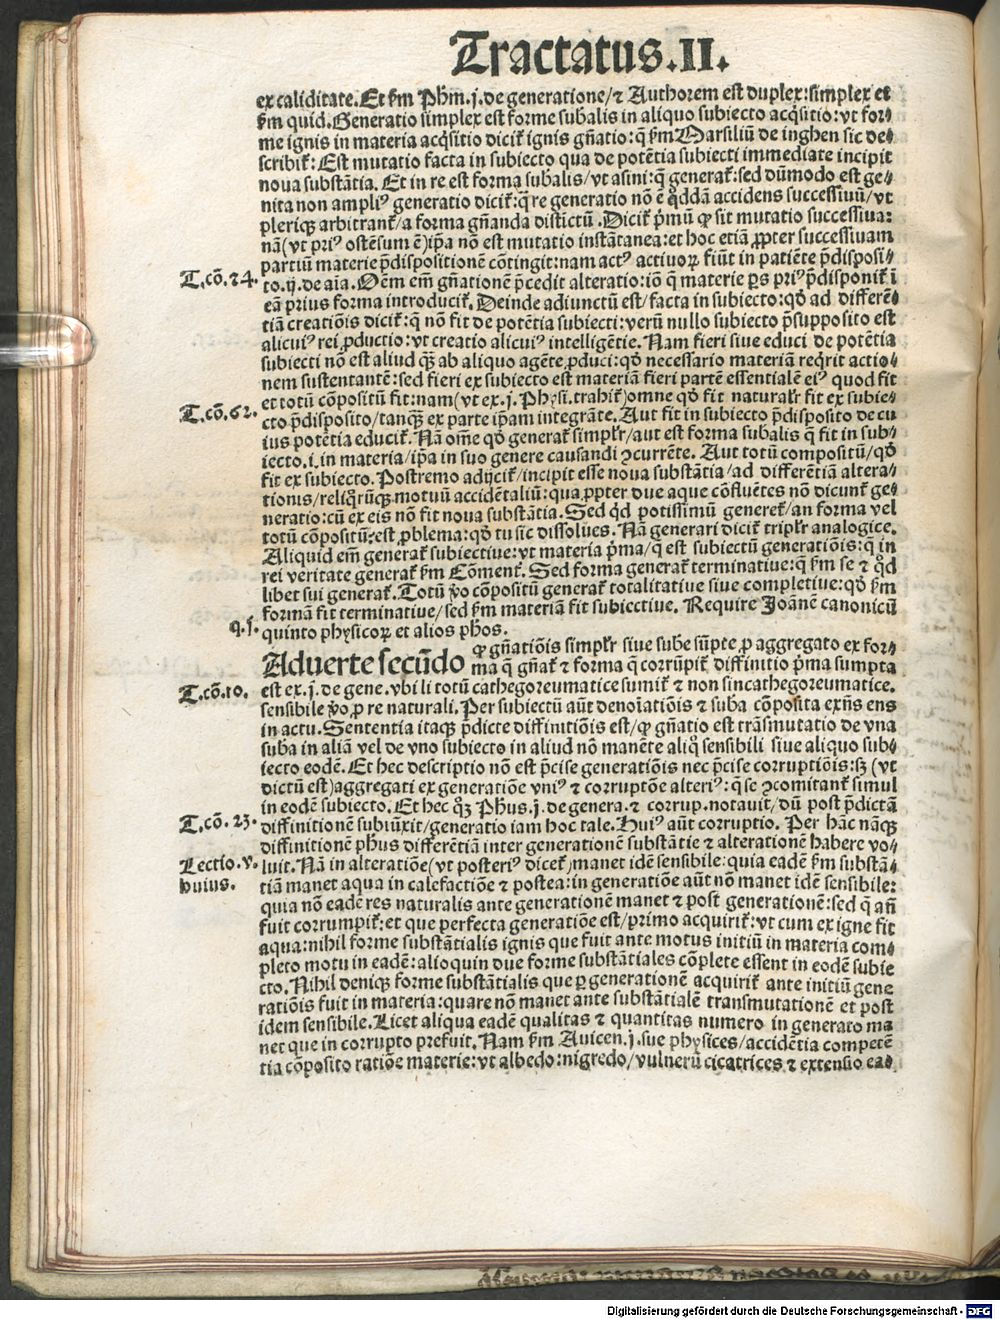 Tractatus.II.
ex caliditate. Et ẜm Phm̄.j. de generatione/⁊ Authorem est duplex: simplex et
ẜm quid. Generatio simplex est forme sub̄alis in aliquo subiecto acq̇sitio: vt for⸗
me ignis in materia acq̇sitio dicit᷑ ignis gn̄atio: q̄ ẜm Marsiliū de inghen sic de⸗
scribit᷑: Est mutatio facta in subiecto qua de potētia subiecti immediate incipit
noua substātia. Et in re est forma sub̄alis/vt asini: q̄ generat᷑: sed dūmodo est ge⸗
nita non ampliꝰ generatio dicit᷑: q̄re re generatio nō ē q̊ddā accidens successiuū/vt
pleriqꝫ arbitrant᷑/a forma gn̄anda distictū. Dicit᷑ p̄mū ꝙ sit mutatio successiua:
nā (vt priꝰ ostēsum ē) ip̄a nō est mutatio instātanea: et hoc etiā ꝓpter successiuam
partiū materie p̄dispositionē cōtingit: nam actꝰ actiuoꝝ fiūt in patiēte p̄disposi⸗
T.cō.24. to.ij. de aīa. Oēm em̄ gn̄ationē p̄cedit alteratio: iō q̄ materie ꝑs priꝰ p̄disponit᷑ ī
eā prius forma introducit᷑. Deinde adiunctū est/facta in subiecto: qd̄ ad differē⸗
tiā creatiōis dicit᷑: q̄ nō fit de potētia subiecti: verū nullo subiecto p̄supposito est
alicuiꝰ rei ꝓductio: vt creatio alicuiꝰ intelligētie. Nam fieri siue educi de potētia
subiecti nō est aliud qꝫ ab aliquo agēte ꝓduci: qd̄ necessario materiā req̇rit actio⸗
nem sustentantē: sed fieri ex subiecto est materiā fieri partē essentialē eiꝰ quod fit
et totū cōpositū fit: nam (vt ex.j. Physi. trahit᷑) omne qd̄ fit naturalr̄ fit ex subie⸗
T.cō.62. cto p̄disposito/tanqꝫ ex parte ip̄am integrāte. Aut fit in subiecto p̄disposito de cu
ius potētia educit᷑. Nā om̄e qd̄ generat᷑ simplr̄/aut est forma sub̄alis q̄ fit in sub⸗
iecto.i. in materia/ip̄a in suo genere causandi ꝯcurrēte. Aut totū compositū/qd̄
fit ex subiecto. Postremo adijcit᷑/incipit esse noua substātia/ad differētiā altera⸗
tionis/reliq̇rūqꝫ motuū accidētaliū: qua ꝓpter due aque cōfluētes nō dicunt᷑ ge⸗
neratio: cū ex eis nō fit noua substātia. Sed q̇d potissimū generet᷑/an forma vel
totū cōpositū: est ꝓblema: qd̄ tu sic dissolues. Nā generari dicit᷑ triplr̄ analogice.
Aliquid em̄ generat᷑ subiectiue: vt materia p̄ma/q̄ est subiectū generatiōis: q̄ in
rei veritate generat᷑ ẜm Cōment᷑. Sed forma generat᷑ terminatiue: q̄ ẜm se ⁊ q̊d
libet sui generat᷑. Totū v̊o cōpositū generat᷑ totalitatiue siue completiue: qd̄ ẜm
formā fit terminatiue/sed ẜm materiā fit subiectiue. Require Joānē canonicū
q.j. quinto physicoꝝ et alios ph̄os.
Aduerte secūdo ꝙ gn̄atiōis simplr̄ siue sube sūpte ꝓ aggregato ex for⸗
ma q̄ gn̄at᷑ ⁊ forma q̄ corrūpit᷑ diffinitio p̄ma sumpta
T.cō.10. est ex.j. de gene. vbi li totū cathegoreumatice sumit᷑ ⁊ non sincathegoreumatice.
sensibile v̊o ꝓ re naturali. Per subiectū aūt denoīatiōis ⁊ sub̄a cōposita exn̄s ens
in actu. Sententia itaqꝫ p̄dicte diffinitiōis est/ꝙ gn̄atio est trāsmutatio de vna
sub̄a in aliā vel de vno subiecto in aliud nō manēte aliq̊ sensibili siue aliquo sub⸗
iecto eodē. Et hec descriptio nō est p̄cise generatiōis nec p̄cise corruptiōis: sꝫ (vt
dictū est) aggregati ex generatiōe vniꝰ ⁊ corruptōe alteriꝰ: q̄ se ꝯcomitant᷑ simul
in eodē subiecto. Et hec q̊ꝫ Phus.j. de genera. ⁊ corrup. notauit/dū post p̄dictā
T.cō.23. diffinitionē subiūxit/generatio iam hoc tale. Huiꝰ aūt corruptio. Per hāc nāqꝫ
diffinitionē phus differētiā inter generationē substātie ⁊ alterationē habere vo⸗
Lectio.v. luit. Nā in alteratiōe (vt posteriꝰ dicet᷑) manet idē sensibile: quia eadē ẜm substā⸗
huius. tiā manet aqua in calefactiōe ⁊ postea: in generatiōe aūt nō manet idē sensibile:
quia nō eadē res naturalis ante generationē manet ⁊ post generationē: sed q̄ an̄
fuit corrumpit᷑: et que perfecta generatiōe est/primo acquirit᷑: vt cum ex igne fit
aqua: nihil forme substātialis ignis que fuit ante motus initiū in materia com⸗
pleto motu in eadē: alioquin due forme substātiales cōplete essent in eodē subie
cto. Nihil deniqꝫ forme substātialis que ꝑ generationē acquirit᷑ ante initiū gene
ratiōis fuit in materia: quare nō manet ante substātialē transmutationē et post
idem sensibile. Licet aliqua eadē qualitas ⁊ quantitas numero in generato ma
net que in corrupto prefuit. Nam ẜm Auicen.j. sue physices/accidētia competē
tia cōposito ratiōe materie: vt albedo: nigredo/vulnerū cicatrices ⁊ extensio eaɜ⸗
Digitalisierung gefördert durch die Deutsche Forschungsgemeinschaft - DFG